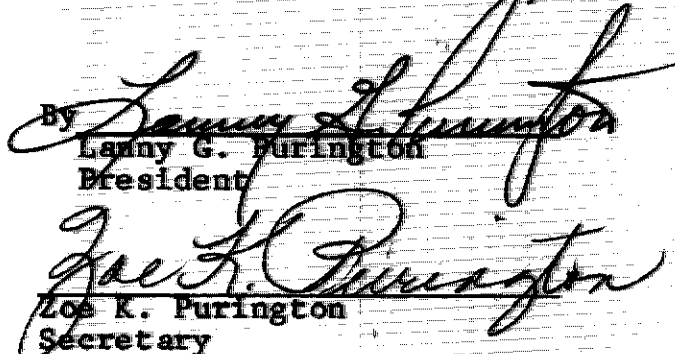 By Lanny G. Purington
Lanny G. Purington
President
Zoe K. Purington
Zoe K. Purington
Secretary